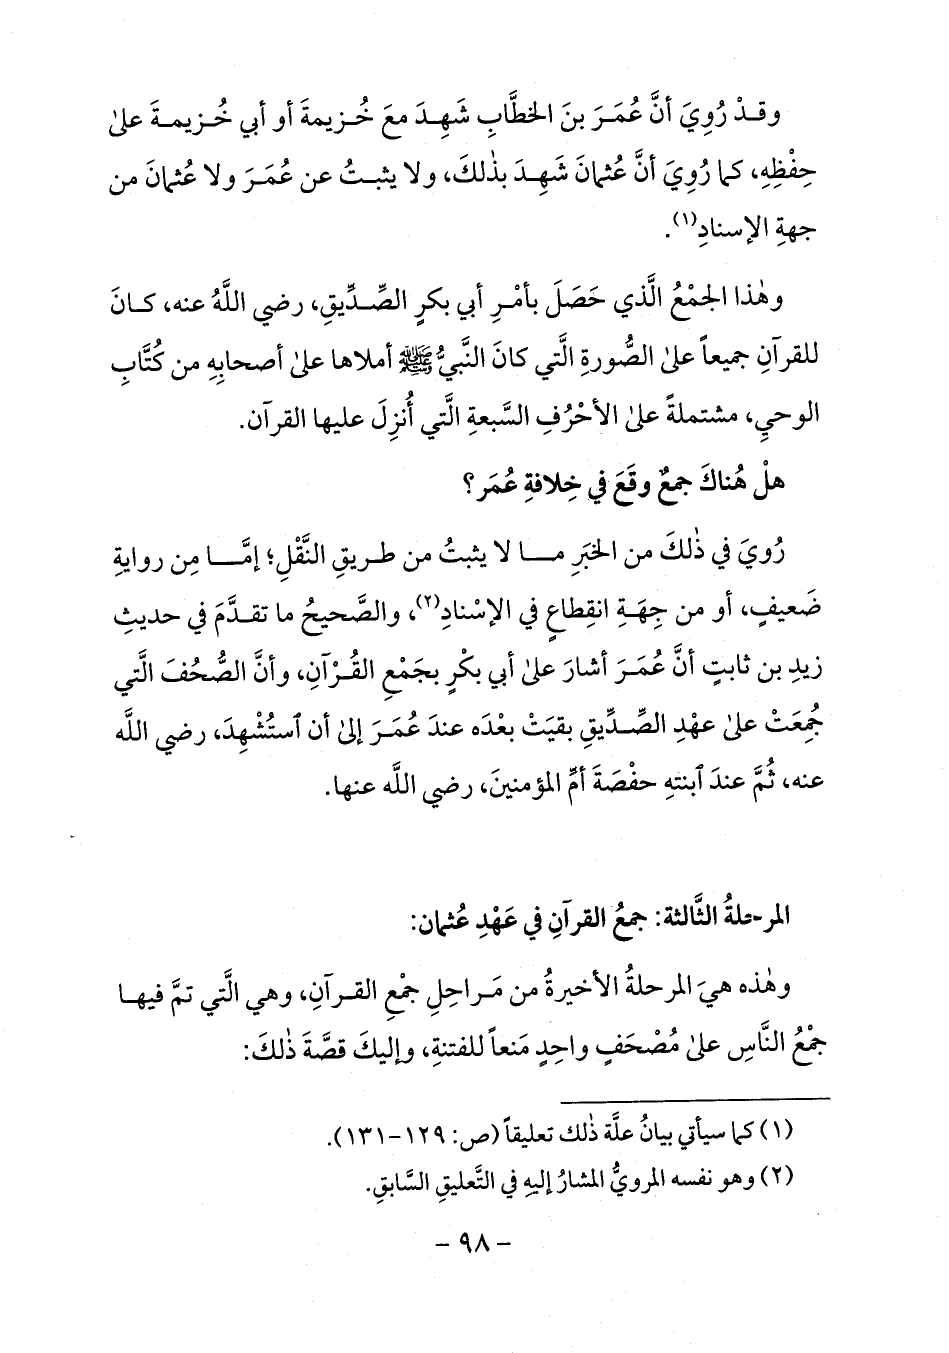 وقدْ رُوِيَ أنَّ عُمَرَ بنَ الخطَّابِ شَهِدَ معَ خُزيمةَ أو أبي خُزيمةَ علىٰ
حِفْظِهِ، كما رُوِيَ أنَّ عُثمانَ شَهِدَ بذٰلكَ، ولا يثبتُ عن عُمَرَ ولا عُثمانَ من
جهةِ الإسنادِ(١).
وهٰذا الجمْعُ الَّذي حَصَلَ بأمْرِ أبي بكرٍ الصِّدِّيقِ، رضي اللَّهُ عنه، كانَ
للقرآنِ جميعاً علىٰ الصُّورةِ الَّتي كانَ النَّبيُّ ﷺ أملاها علىٰ أصحابِهِ من كُتَّابِ
الوحيِ، مشتملةً علىٰ الأحْرُفِ السَّبعةِ الَّتي أُنزِلَ عليها القرآن.
هلْ هُناكَ جمعٌ وقَعَ في خِلافةِ عُمَر؟
رُويَ في ذٰلكَ من الخبَرِ ما لا يثبتُ من طريقِ النَّقْلِ؛ إمَّا مِن روايةِ
ضَعيفٍ، أو من جِهَةِ انقِطاعٍ في الإسْنادِ(٢)، والصَّحيحُ ما تقدَّمَ في حديثِ
زيدِ بن ثابتٍ أنَّ عُمَرَ أشارَ علىٰ أبي بكْرٍ بجَمْعِ القُرْآنِ، وأنَّ الصُّحُفَ الَّتي
جُمِعَتْ علىٰ عهْدِ الصِّدِّيقِ بقيَتْ بعْدَه عندَ عُمَرَ إلىٰ أن ٱستُشْهِدَ، رضي اللَّه
عنه، ثُمَّ عندَ ٱبنتهِ حفْصَةَ أمِّ المؤمنينَ، رضي اللَّه عنها.
المرحلةُ الثَّالثة: جمعُ القرآنِ في عَهْدِ عُثمان:
وهٰذه هيَ المرحلةُ الأخيرةُ من مَراحِلِ جمْعِ القرآنِ، وهي الَّتي تمَّ فيها
جمْعُ النَّاسِ علىٰ مُصْحَفٍ واحِدٍ مَنعاً للفتنةِ، وإليكَ قصَّةَ ذٰلكَ:
(١) كما سيأتي بيانُ علَّة ذٰلك تعليقاً (ص: ١٢٩-١٣١).
(٢) وهو نفسه المرويُّ المشارُ إليهِ في التَّعليقِ السَّابقِ.
- ٩٨ -